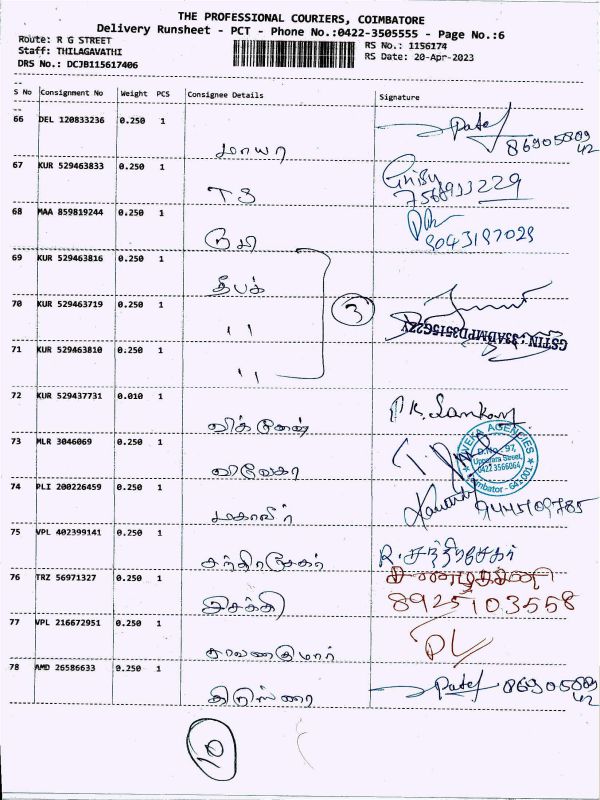 THE PROFESSIONAL COURIERS, COIMBATORE
Delivery Runsheet - PCT - Phone No.:0422-3505555 - Page No.:6
Route: R G STREET
Staff: THILAGAVATHI
DRS No.: DCJB115617406
RS No.: 1156174
RS Date: 20-Apr-2023
S No Consignment No Weight PCS Consignee Details Signature
66 DEL 120833236 0.250 1
மாயா
Patel
8690580942
67 KUR 529463833 0.250 1
TS
7568933229
68 MAA 859819244 0.250 1
ரூபி
9043197029
69 KUR 529463816 0.250 1
தீபக்
70 KUR 529463719 0.250 1
''
3
GSTIN : 33ADMPD3515G2ZY
71 KUR 529463810 0.250 1
''
72 KUR 529437731 0.010 1
விக்னேஷ்
P.K. Sankar
73 MLR 3046069 0.250 1
விவேகா
VIVEKA AGENCIES
D.No. 97,
Uppara Street,
0422 3566064
Coimbatore - 641 001
74 PLI 200226459 0.250 1
மகாவீர்
9445109785
75 VPL 402399141 0.250 1
சந்திரசேகர்
R. சந்திரசேகர்
76 TRZ 56971327 0.250 1
இசக்கி
8925103558
77 VPL 216672951 0.250 1
சரவணகுமார்
78 AMD 26586633 0.250 1
Patel 8690580942
10